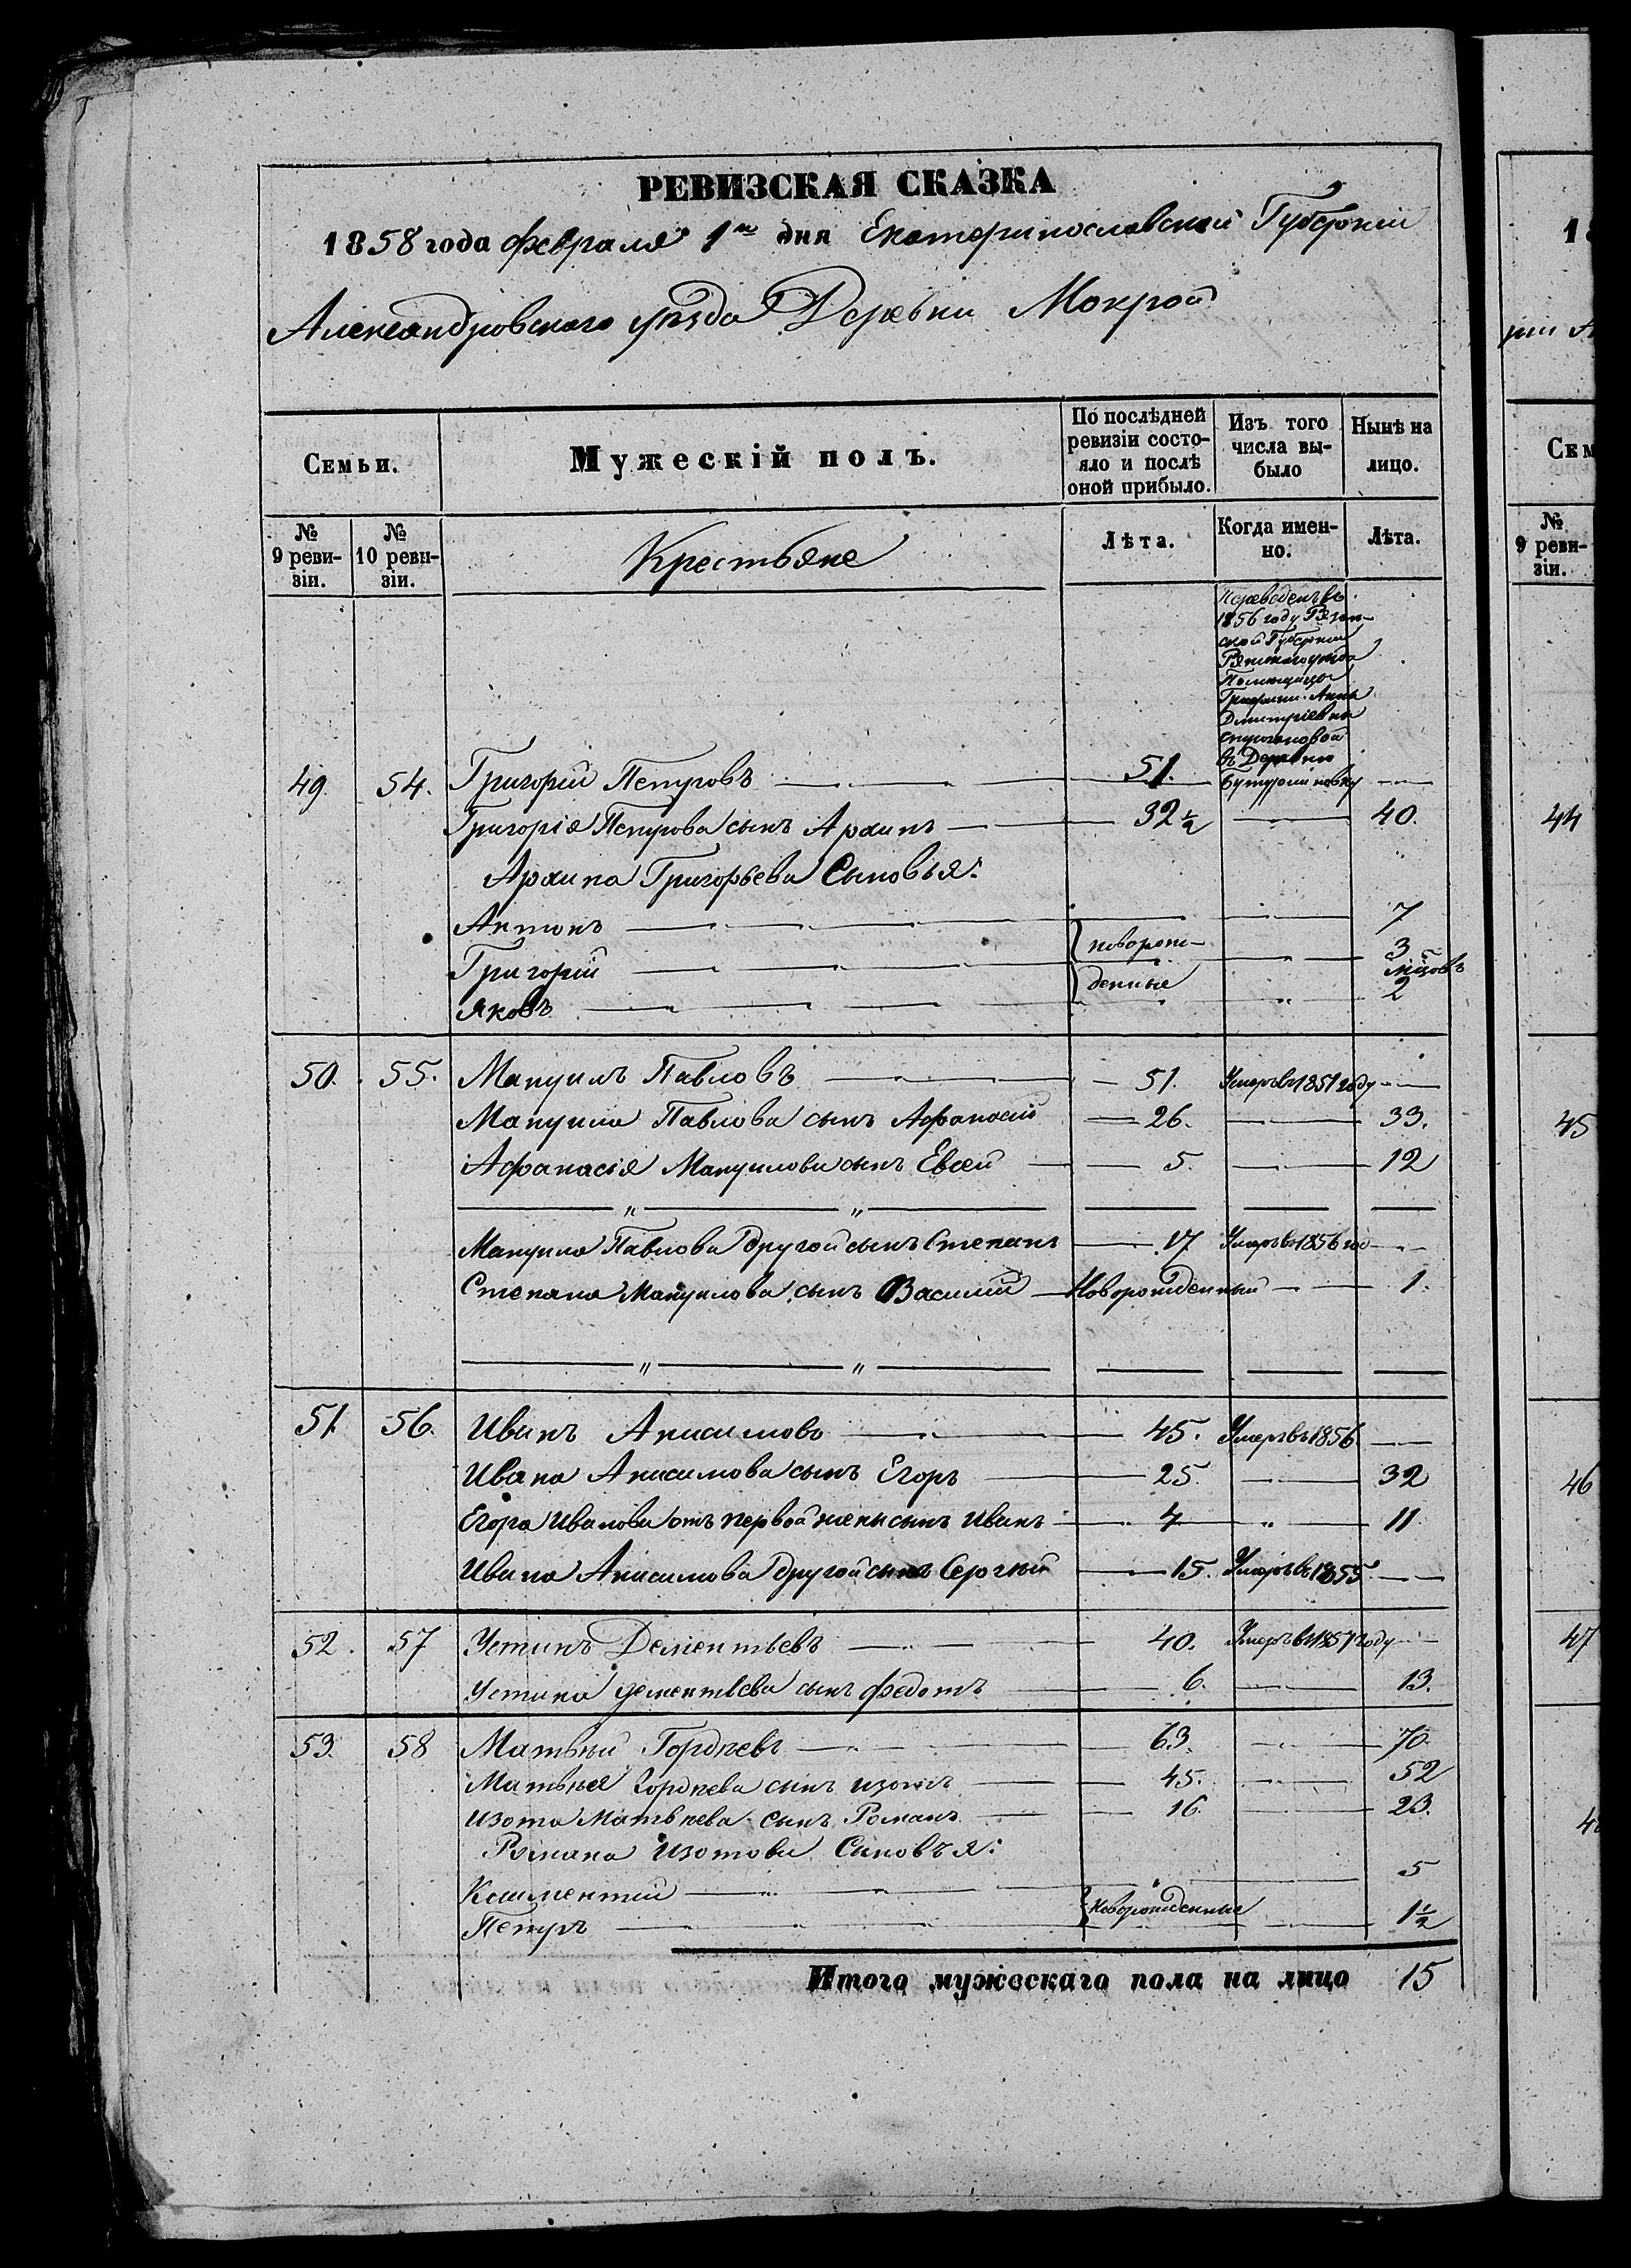 РЕВИЗСКАЯ СКАЗКА
1858 года февраля 1го дня Екатеринославской Губерніи
Александровскаго уѣзда Деревни Мокрой
Семьи.
Мужескій полъ.
По послѣдней ревизіи состояло и послѣ оной прибыло.
Изъ того числа выбыло
Нынѣ на лицо.
№ 9 ревизіи.
№ 10 ревизіи.
Крестьяне
Лѣта.
Когда именно.
Лѣта.
Переведенъ въ
1856 году Рязан-
ской Губерніи
Ряжскаго уѣзда
Помещицы
Графини Анны
Дмитріевны
въ Деревню
49. 54. Григорій Петровъ 51.
Григорія Петрова сынъ Архипъ 32 1/2 40.
Архипа Григорьева Сыновья:
Антонъ 7
Григорій новорож- 3
Яковъ денные мѣсцовъ 2
50. 55. Мануилъ Павловъ 51. Умеръ въ 1851 году
Мануила Павлова сынъ Афанасій 26. 33.
Афанасія Мануилова сынъ Евсей 5. 12
Мануила Павлова другой сынъ Степанъ 17 Умеръ въ 1856 год
Степана Мануилова сынъ Василій Новорожденный 1.
51. 56. Иванъ Анисимовъ 45. Умеръ въ 1856
Ивана Анисимова сынъ Егоръ 25. 32
Егора Иванова отъ первой жены сынъ Иванъ 4 11
Ивана Анисимова другой сынъ Сергѣй 15. Умеръ въ 1855
52. 57 Устинъ Дементьевъ 40. Умеръ въ 1857 году
Устина Дементьева сынъ Федотъ 6. 13.
53. 58 Матвѣй Гордѣевъ 63. 70.
Матвѣя Гордѣева сынъ Изотъ 45. 52
Изота Матвѣева сынъ Романъ 16. 23.
Романа Изотова Сыновъя:
Климентій 5
Петръ Новорожденные 1 1/2
Итого мужескаго пола на лицо 15
18
Сем
№ 9 ревизіи.
44
45
46
47